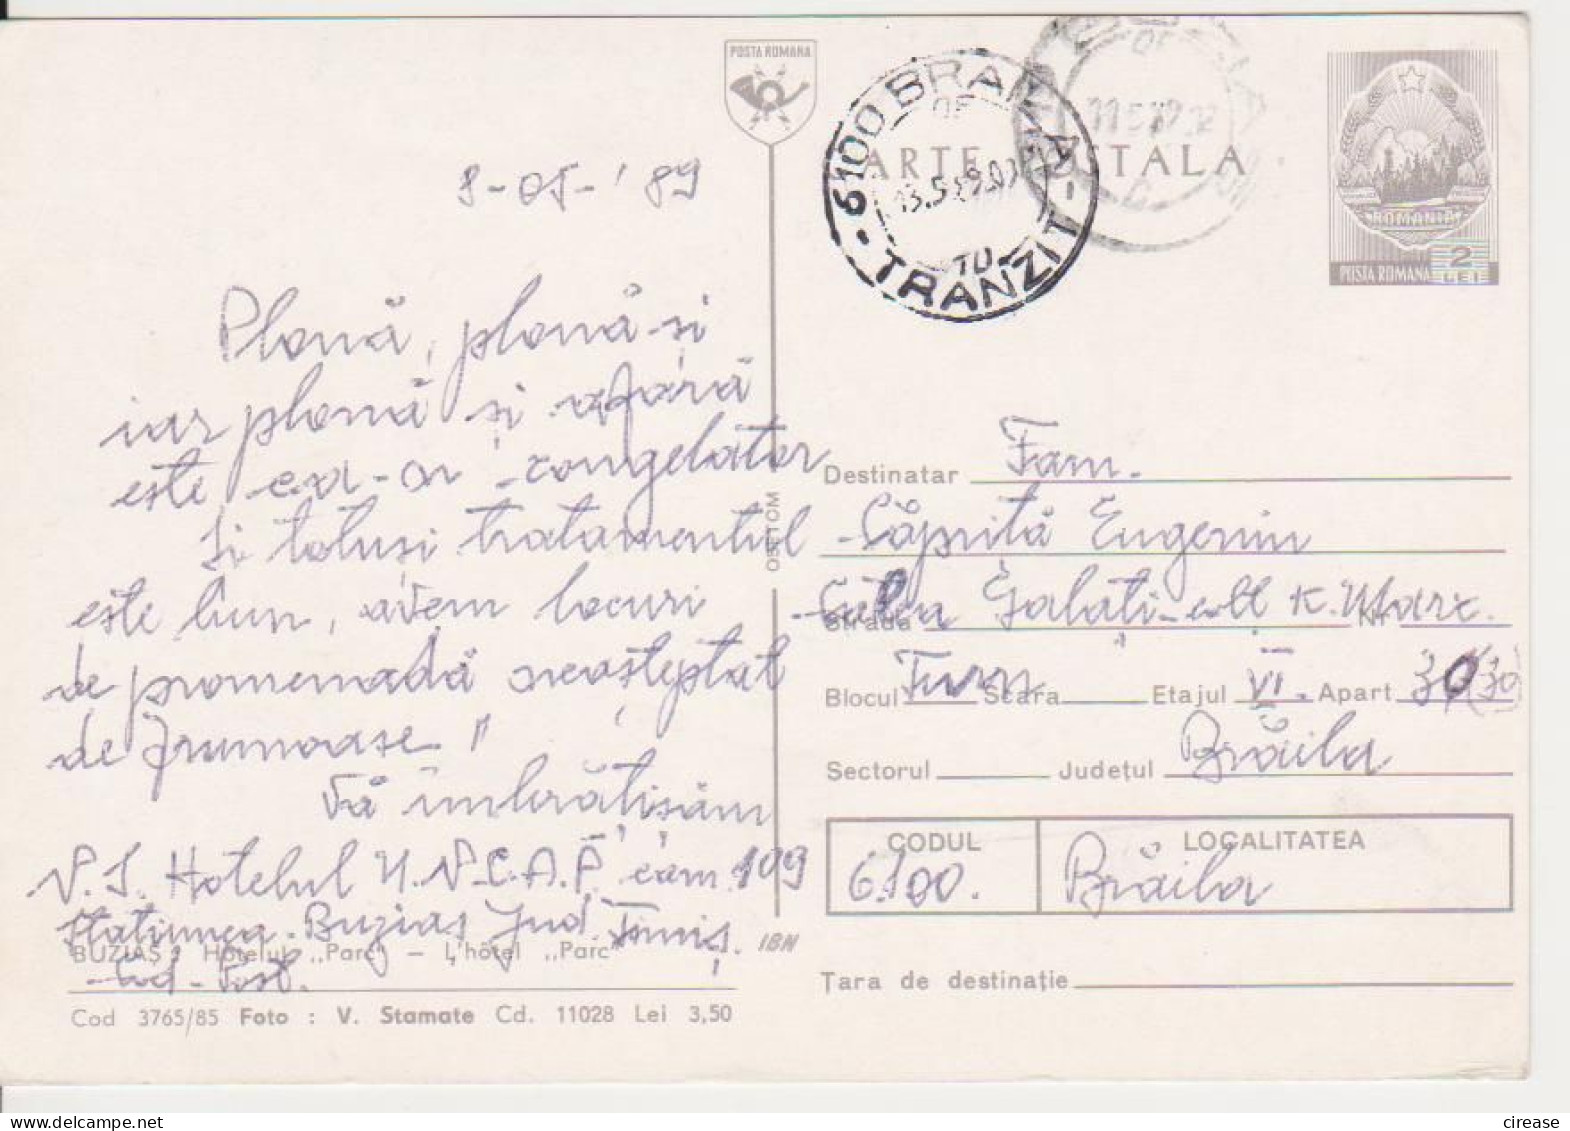 POSTA ROMANA
6100 BRAILA
TRANZIT
13.5.89.
CARTE POSTALA
ROMANIA
POSTA ROMANA
2
LEI
8-05-'89
Plouă, plouă și
iar plouă și afară
este ca-n congelator
Și totuși tratamentul
este bun, avem locuri
de promenadă neașteptat
de frumoase"
Vă îmbrățișăm
P.S. Hotelul U.N.C.A.P. cam 109
Stațiunea Buziaș Jud. Timiș.
BUZIAȘ : Hotelul „Parc" – L'hôtel „Parc"
Cod Post.
Cod 3765/85 Foto : V. Stamate Cd. 11028 Lei 3,50
Destinatar Fam.
Căpriță Eugeniu
Strada Calea Galați - colț K. Marx. Nr
Blocul Turn Scara Etajul VI. Apart 30 (30)
Sectorul Județul Brăila
CODUL LOCALITATEA
6100. Brăila
Țara de destinație